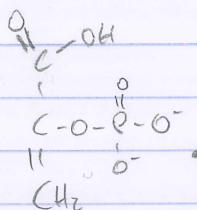 O
C - OH
O
C - O - P - O⁻
O⁻
CH₂